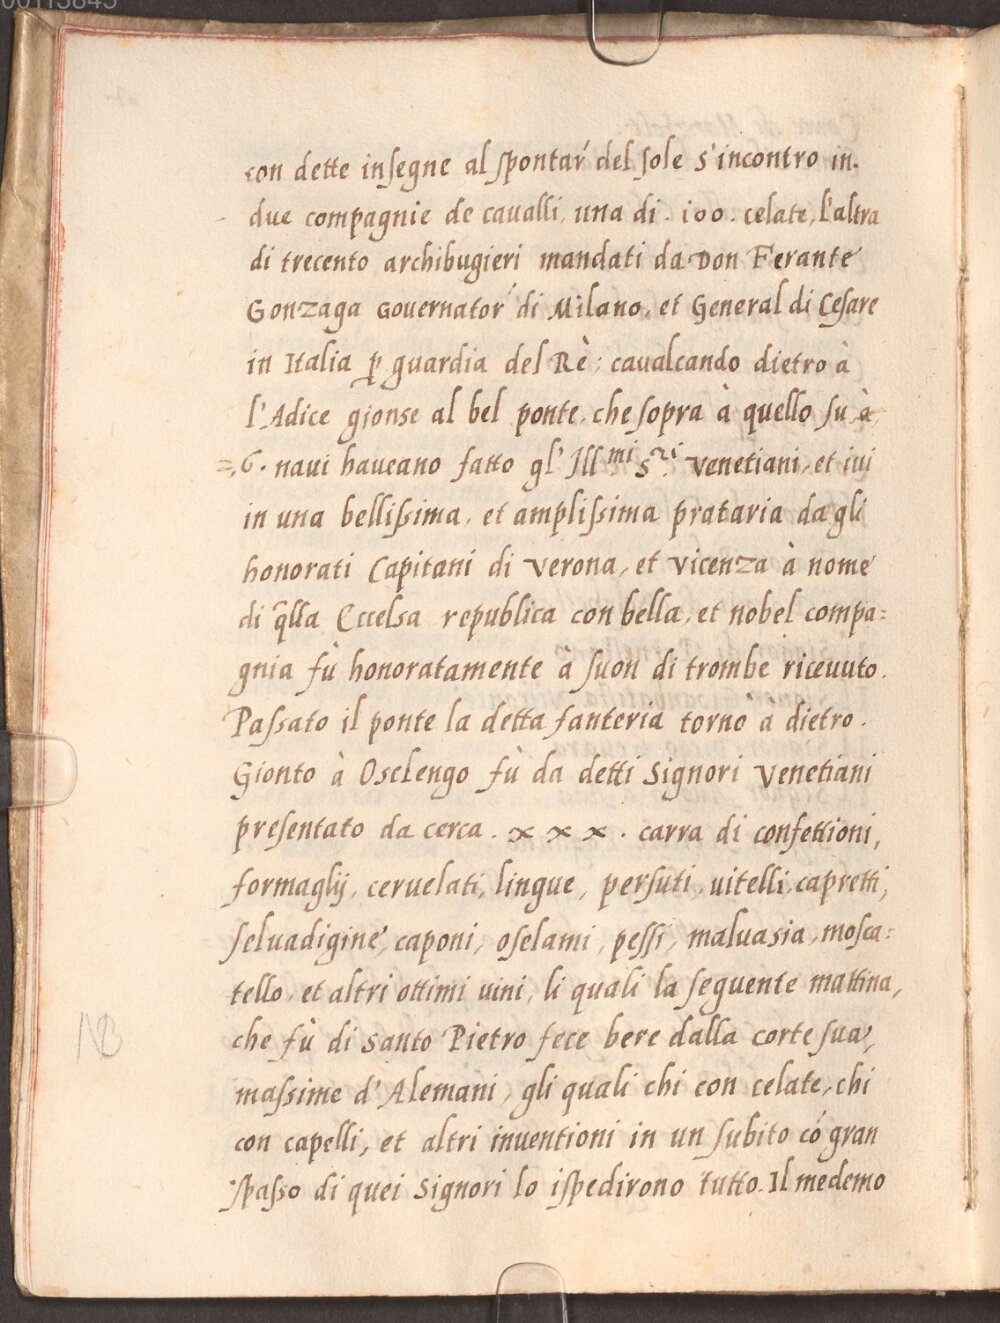 00113845
con dette insegne al spontar' del sole s'incontro in.
due compagnie de caualli, una di . 100 . celate, l'altra
di trecento archibugieri mandati da Don Ferante
Gonzaga Gouernator' di Milano, et General di Cesare
in Italia p guardia del Rè; caualcando dietro à
l'Adice gionse al bel ponte, che sopra à quello su à
=, 6. naui haueano fatto gl' Ill.mi S.ri Venetiani, et iui
in una bellissima, et amplissima prataria da gli
honorati Capitani di Verona, et Vicenza à nome
di q̃lla Eccelsa republica con bella, et nobel compa=
gnia fù honoratamente à suon di trombe riceuuto.
Passato il ponte la detta fanteria torno a dietro.
Gionto à Oselengo fù da detti Signori Venetiani
presentato da cerca . x x x . carra di confettioni,
formaglij, ceruelati, lingue, persuti, uitelli, capretti,
seluadigine, caponi, oselami, pessi, maluasia, mosca=
tello, et altri ottimi uini, li quali la seguente mattina,
che fù di Santo Pietro fece bere dalla corte sua,
NB
massime d'Alemani, gli quali chi con celate, chi
con capelli, et altri inuentioni in un subito có gran
spasso di quei Signori lo ispedirono tutto. Il medemo